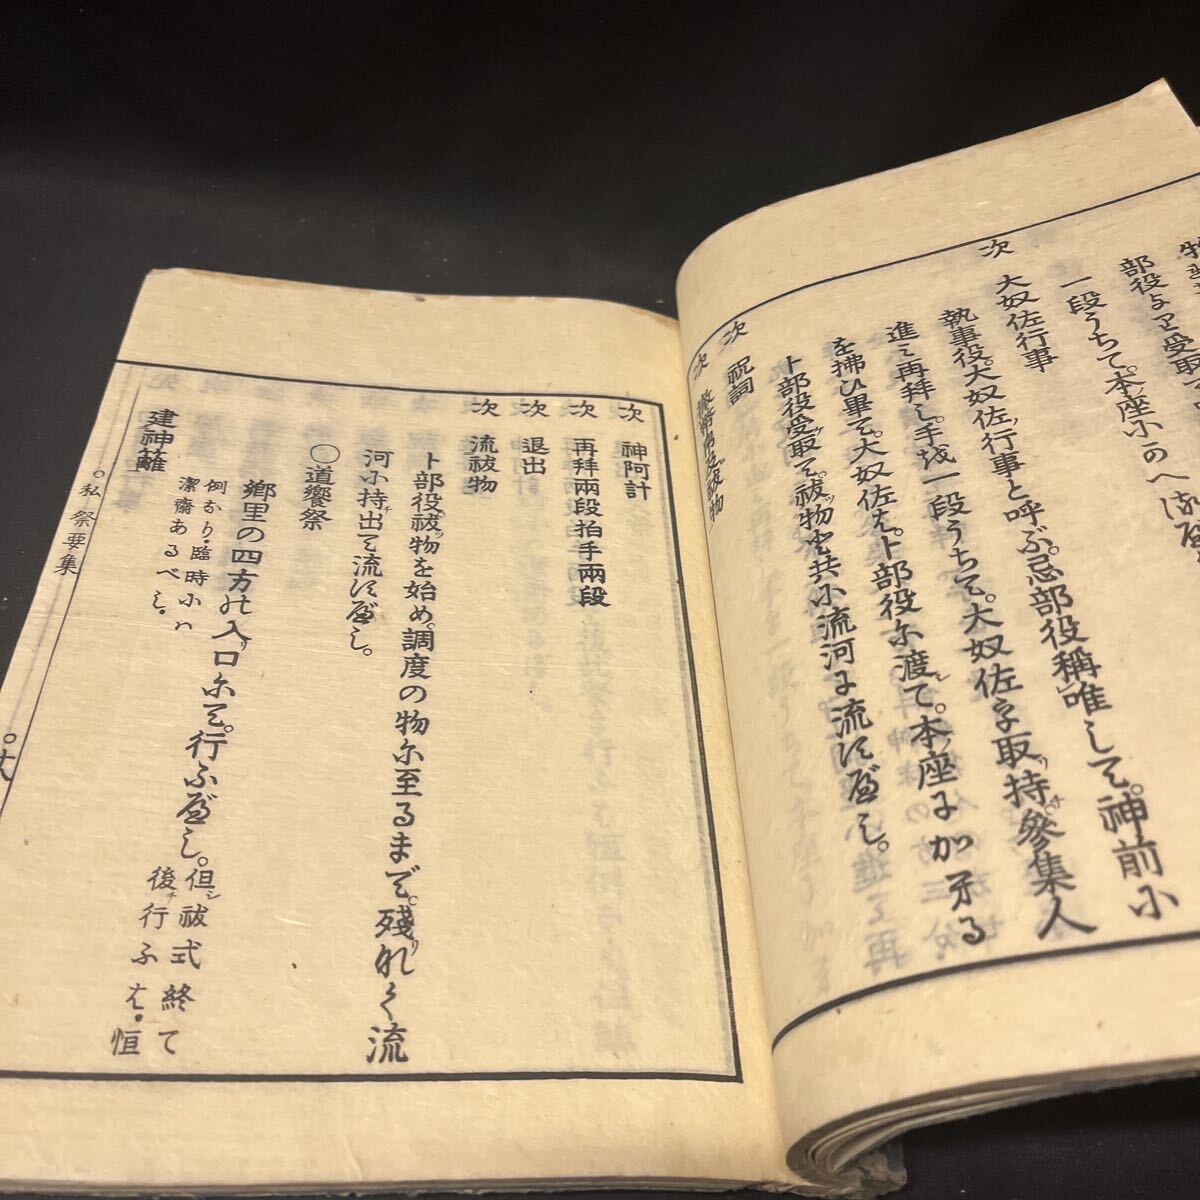 部役よて受取
一段うちて。本座小のへ
次
大奴佐行事
執事役。大奴佐行事と呼ぶ。忌部役稱唯して。神前小
進ミ再拜し。手を一段うちて。大奴佐を取リ持チ參集人
を拂ひ畢て。大奴佐を。卜部役尓渡シて。本座に加不る
卜部役受取て。祓物と共小流河に流すべし。
次
祝詞
次
神阿計
次
再拜兩段拍手兩段
次
退出
次
流祓物
卜部役祓ツ物を始め。調度の物尓至るまで。殘リなく流
河小持チ出て流すべし。
〇道饗祭
鄉里の四方の入リ口尓て。行ふべし。但シ祓式終て
後チ行ふを。恒
例なり。臨時小ハ
潔齋あるべし。
建神籬
。私祭要集
。十八